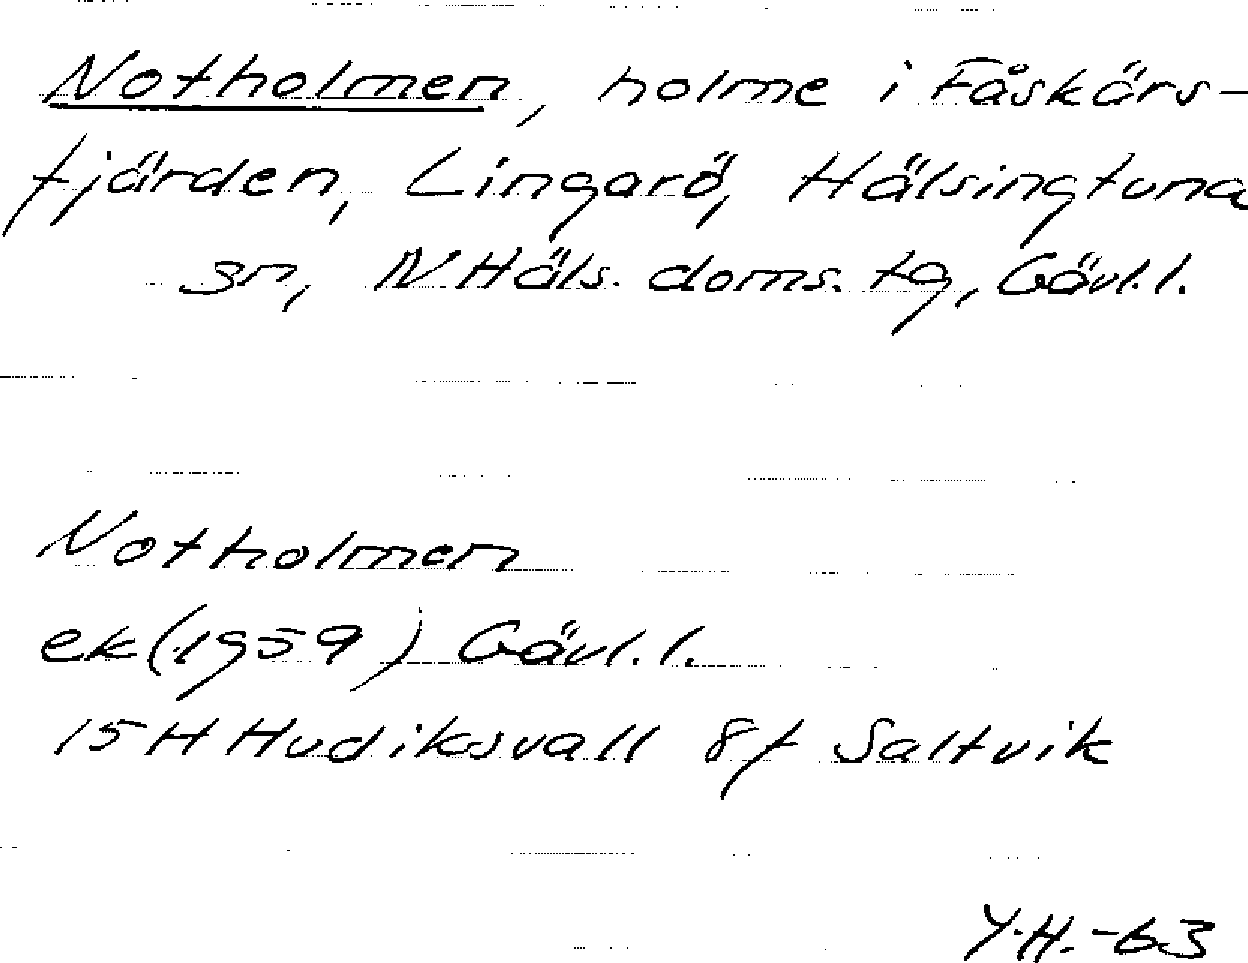 Notholmen, holme i Fåskärs-
fjärden, Lingarö, Hälsingtuna
sn, N Häls. doms. tg, Gävl.l.
Notholmen
ek (1959) Gävl.l.
15H Hudiksvall 8f Saltvik
Y.H.-63